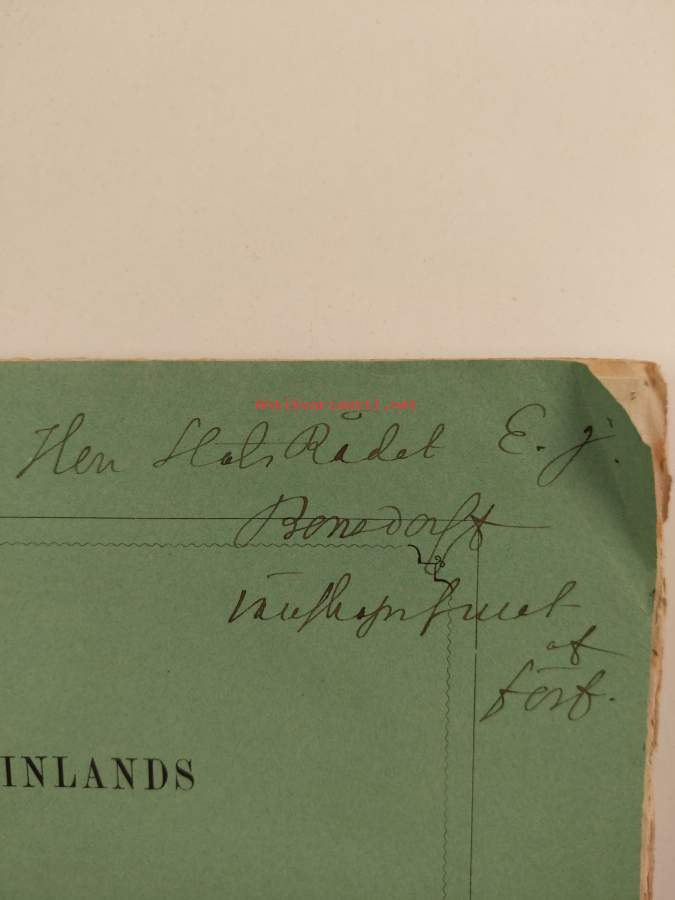 Antikvariaatti.net
Herr StatsRådet E. J.
Bonsdorff
vänskapsfullt
af
förf.
INLANDS